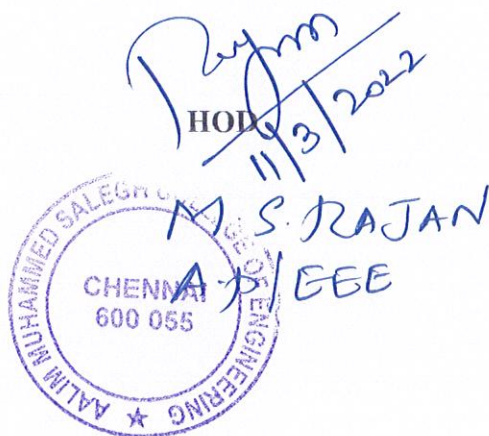 HOD
11/3/2022
M S. RAJAN
AALIM MUHAMMED SALEGH COLLEGE OF ENGINEERING
CHENNAI
600 055
/ EEE